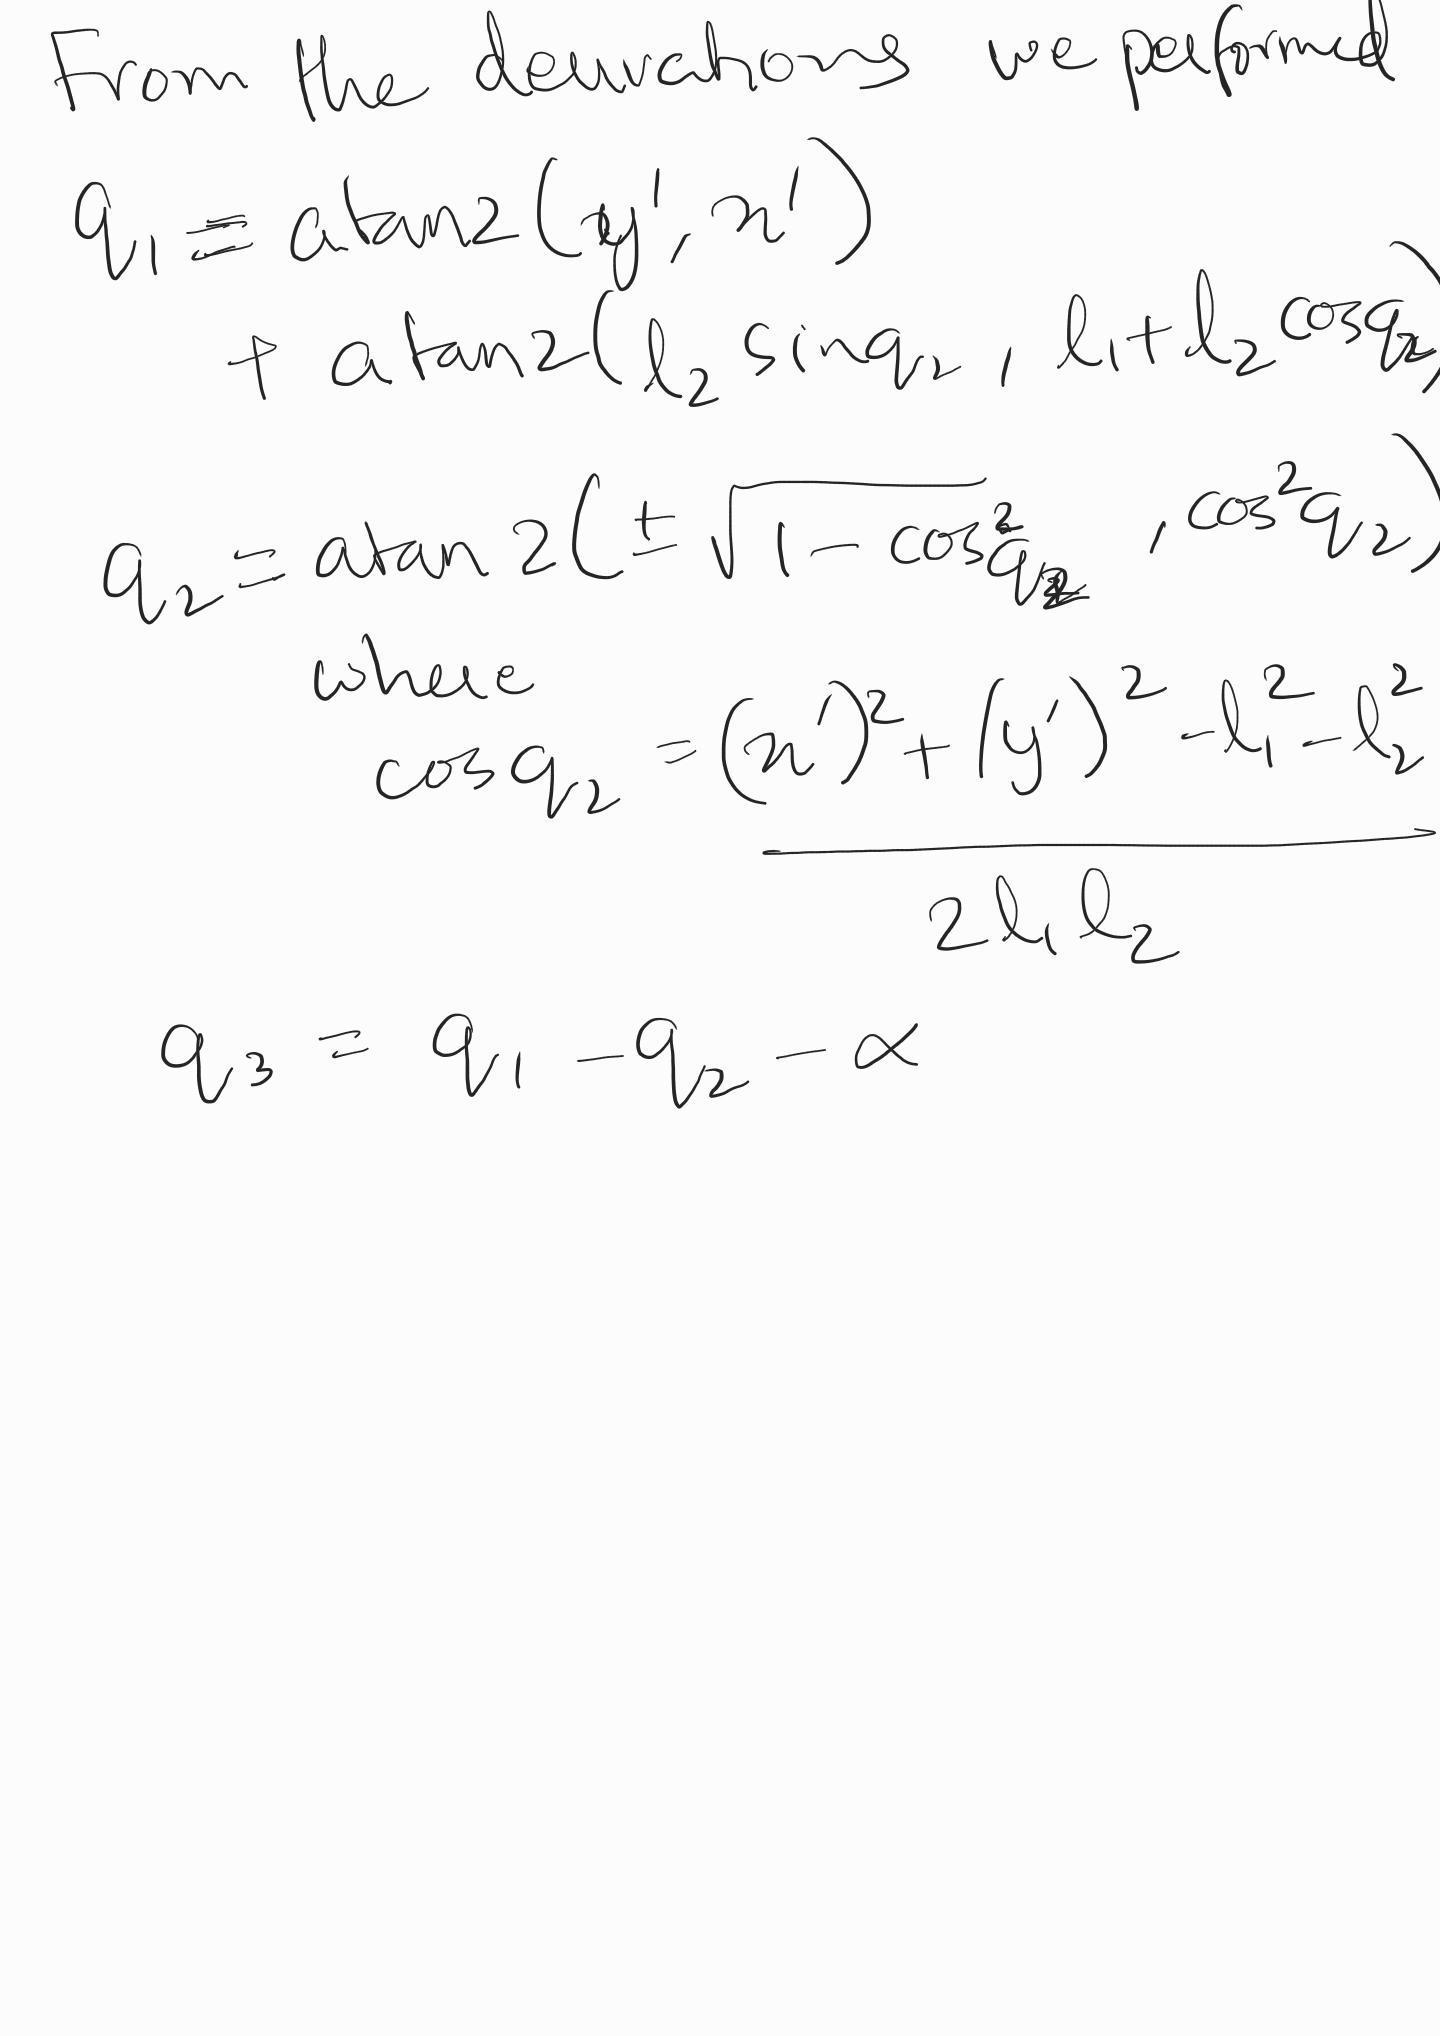 From the derivations we performed
q₁ = atan2(y', x')
+ atan2(l₂ sinq₂, l₁+l₂ cosq₂)
q₂ = atan2(± √(1 - cos²q₂), cos²q₂)
where
cosq₂ = ((x')² + (y')² - l₁² - l₂²) / (2l₁l₂)
q₃ = q₁ - q₂ - α